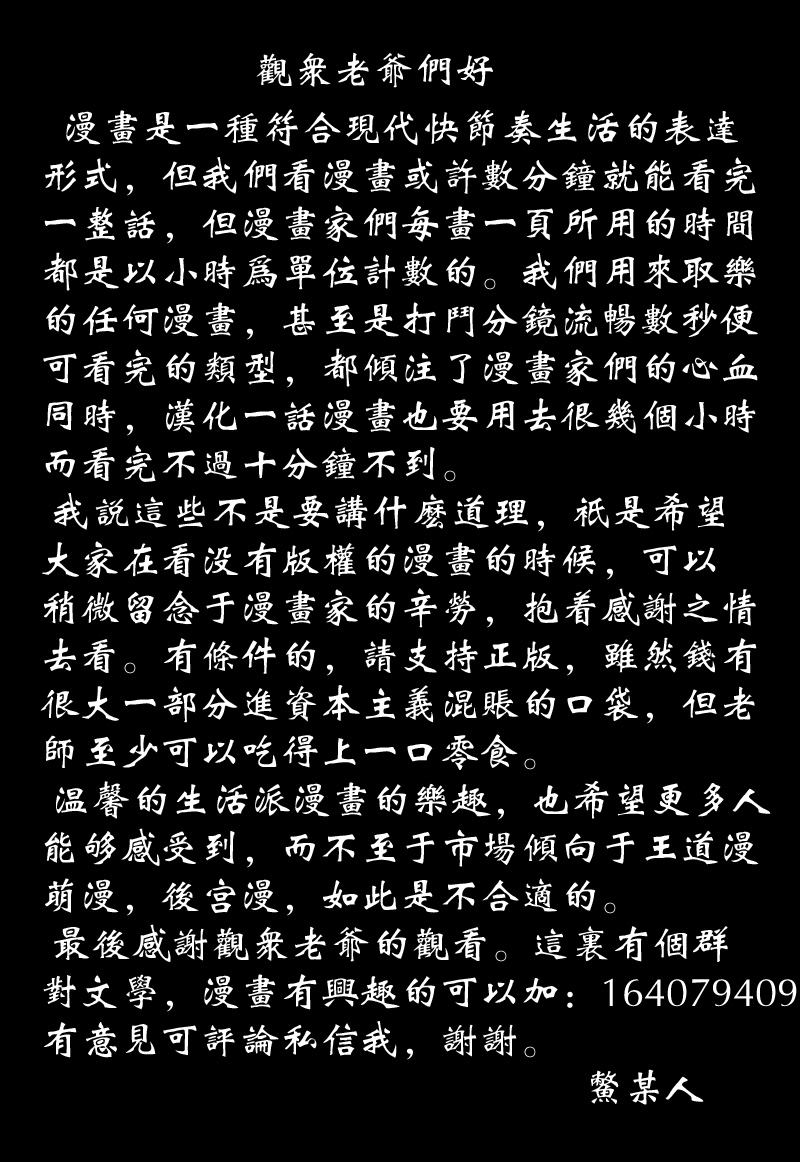 觀衆老爺們好
漫畫是一種符合現代快節奏生活的表達
形式，但我們看漫畫或許數分鐘就能看完
一整話，但漫畫家們每畫一頁所用的時間
都是以小時爲單位計數的。我們用來取樂
的任何漫畫，甚至是打鬥分鏡流暢數秒便
可看完的類型，都傾注了漫畫家們的心血
同時，漢化一話漫畫也要用去很幾個小時
而看完不過十分鐘不到。
我説這些不是要講什麼道理，衹是希望
大家在看没有版權的漫畫的時候，可以
稍微留念于漫畫家的辛勞，抱着感謝之情
去看。有條件的，請支持正版，雖然錢有
很大一部分進資本主義混賬的口袋，但老
師至少可以吃得上一口零食。
温馨的生活派漫畫的樂趣，也希望更多人
能够感受到，而不至于市場傾向于王道漫
萌漫，後宫漫，如此是不合適的。
最後感謝觀衆老爺的觀看。這裏有個群
對文學，漫畫有興趣的可以加：164079409
有意見可評論私信我，謝謝。
鱉某人